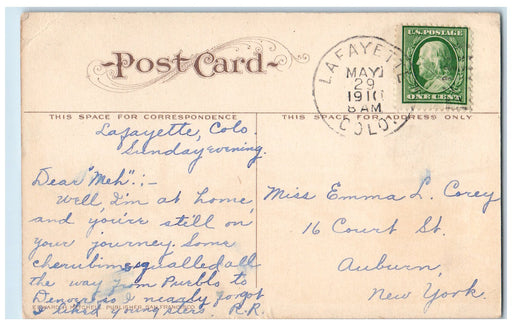 Post Card
U.S. POSTAGE
ONE CENT
LAFAYETTE
MAY
29
1910
8 AM
COLO.
THIS SPACE FOR CORRESPONDENCE
THIS SPACE FOR ADDRESS ONLY
Lafayette, Colo.
Sunday evening.
Dear "Meh":-
Well, I'm at home
and you're still on
your journey. Some
cherubim squalled all
the way from Pueblo to
Denver so I nearly forgot
I liked youngsters. R.R.
PUBLISHER, SAN FRANCISCO
Miss Emma L. Corey
16 Court St.
Auburn,
New York.